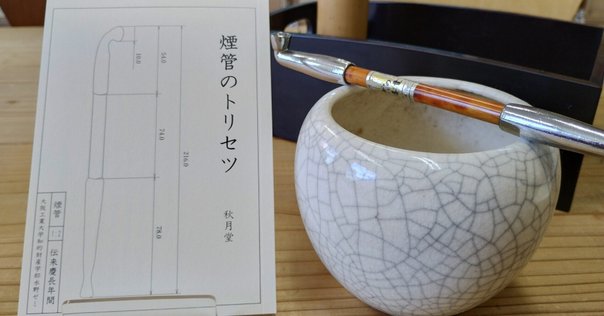 煙管のトリセツ
秋月堂
54.0
10.0
216.0
74.0
78.0
煙管
伝来慶長年間
大阪工業大学知的財産学部水野ゼミ